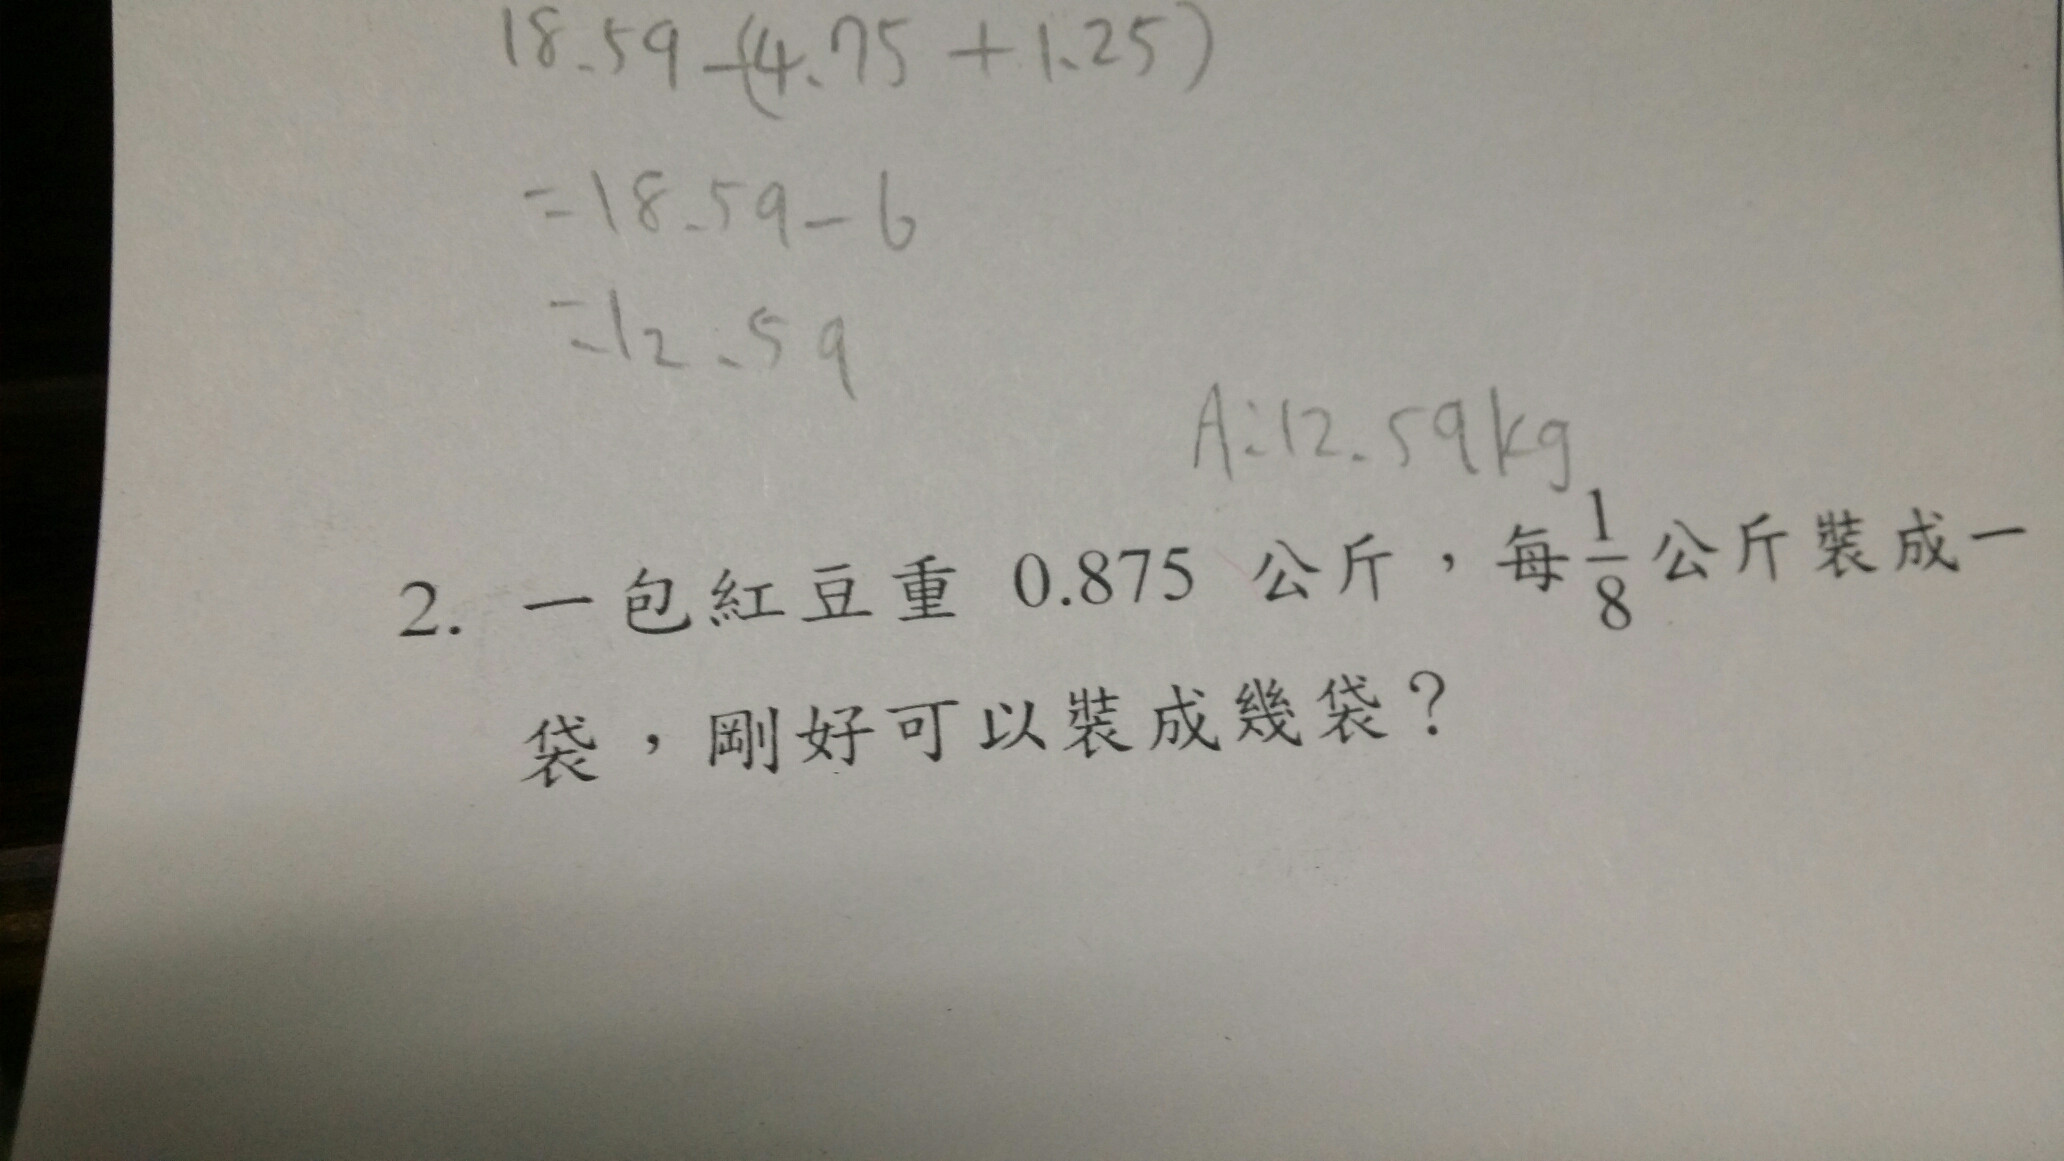 18.59-(4.75+1.25)
=18.59-6
=12.59
A:12.59kg
2. 一包紅豆重 0.875 公斤，每1/8公斤裝成一
袋，剛好可以裝成幾袋？